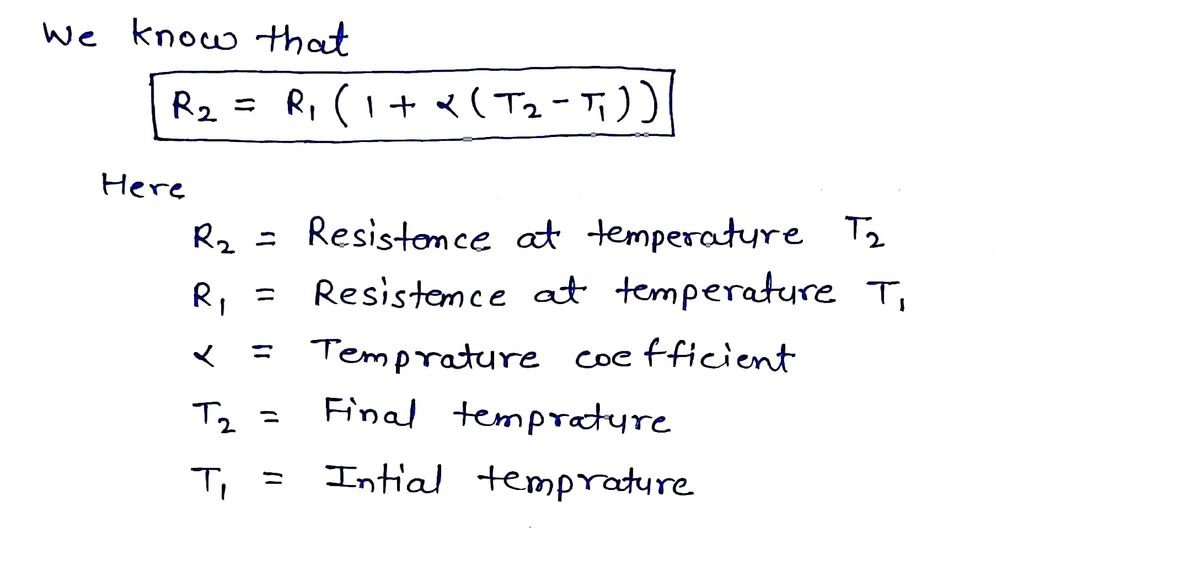 We know that
R₂ = R₁ ( 1 + α ( T₂ - T₁ ) )
Here
R₂ = Resistance at temperature T₂
R₁ = Resistemce at temperature T₁
α = Temprature coefficient
T₂ = Final temprature
T₁ = Intial temprature